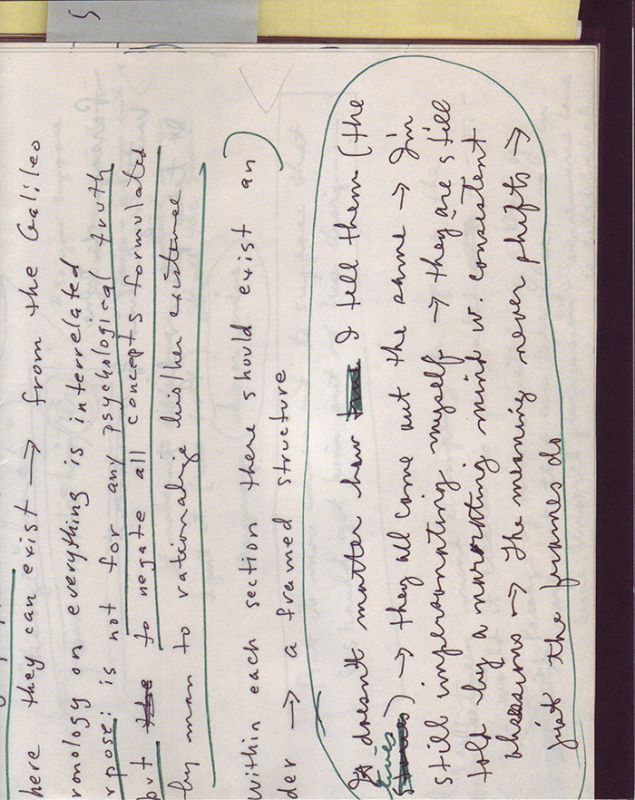 here they can exist → from the Galileo
ronology on everything is interrelated
rpose: is not for any psychological truth
but the to negate all concepts formulated
by man to rationalize his/her existence
Within each section there should exist an
der → a framed structure
It doesn't matter how true I tell them (the
lives) → they all come out the same → I'm
still impersonating myself → they are still
told by a narrating mind w. consistent
obsessions → The meaning never shifts →
just the frames do